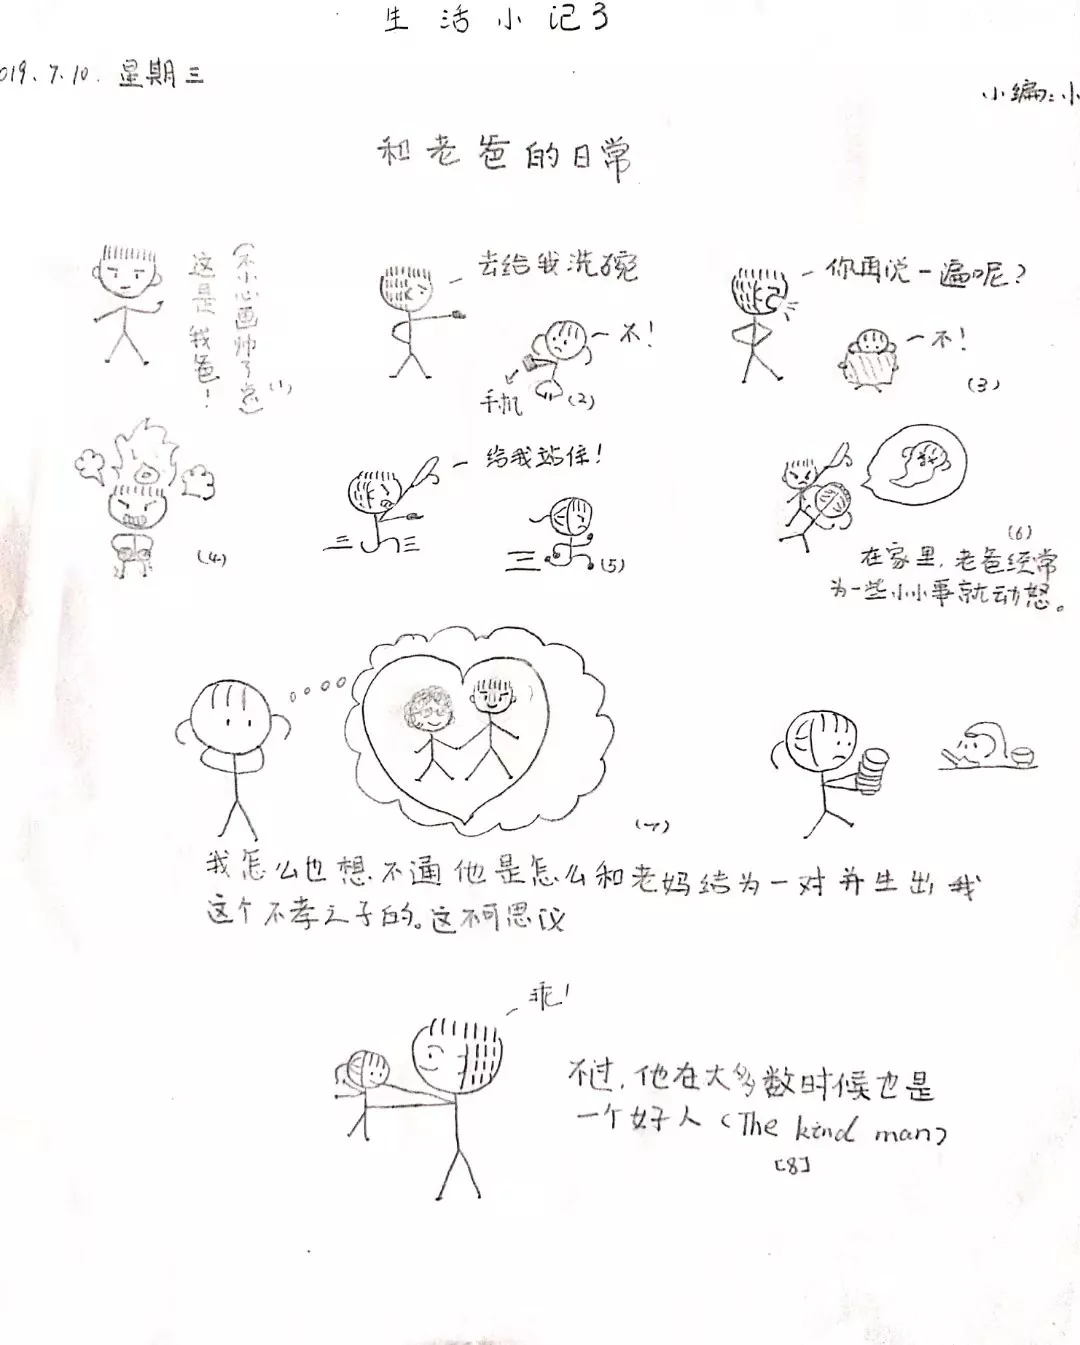 生活小记3
019.7.10. 星期三
小编:小
和老爸的日常
这是我爸!
(不小心画帅了点)
(1)
去给我洗碗
不!
手机
(2)
你再说一遍呢?
不!
(3)
(4)
给我站住!
(5)
(6)
在家里,老爸经常
为一些小小事就动怒。
(7)
我怎么也想不通他是怎么和老妈结为一对并生出我
这个不孝之子的。这不可思议
乖!
不过,他在大多数时候也是
一个好人(The kind man)
[8]